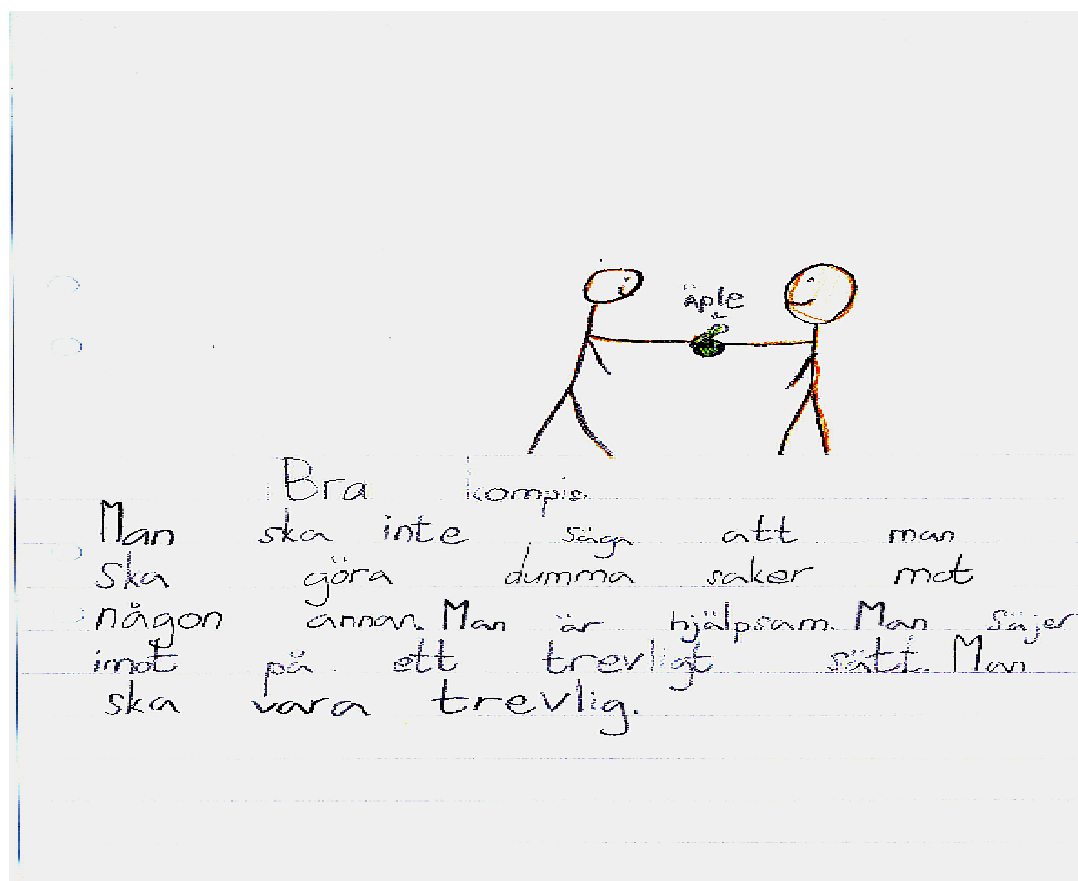 äple
Bra kompis.
Man ska inte säga att man
ska göra dumma saker mot
någon annan. Man är hjälpsam. Man säjer
imot på ett trevligt sätt. Man
ska vara trevlig.